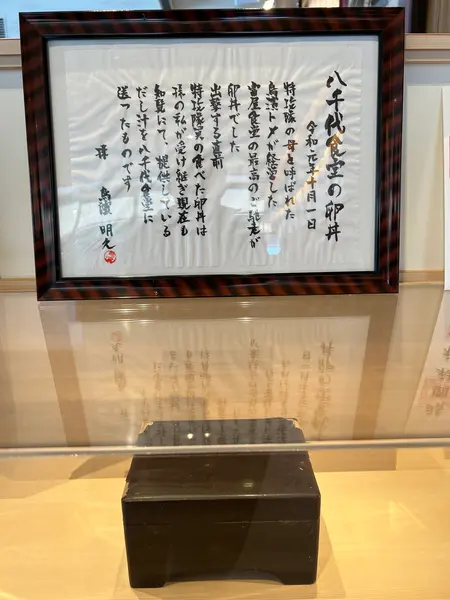 八千代食堂の卵丼
令和元年十月一日
特攻隊の母と呼ばれた
鳥濱トメが経営した
富屋食堂の最高のご馳走が
卵丼でした
出撃する直前
特攻隊員の食べた卵丼は
孫の私が受け継ぎ現在も
知覧にて、提供している
だし汁を八千代食堂に
送ったものです
孫 鳥濱 明久